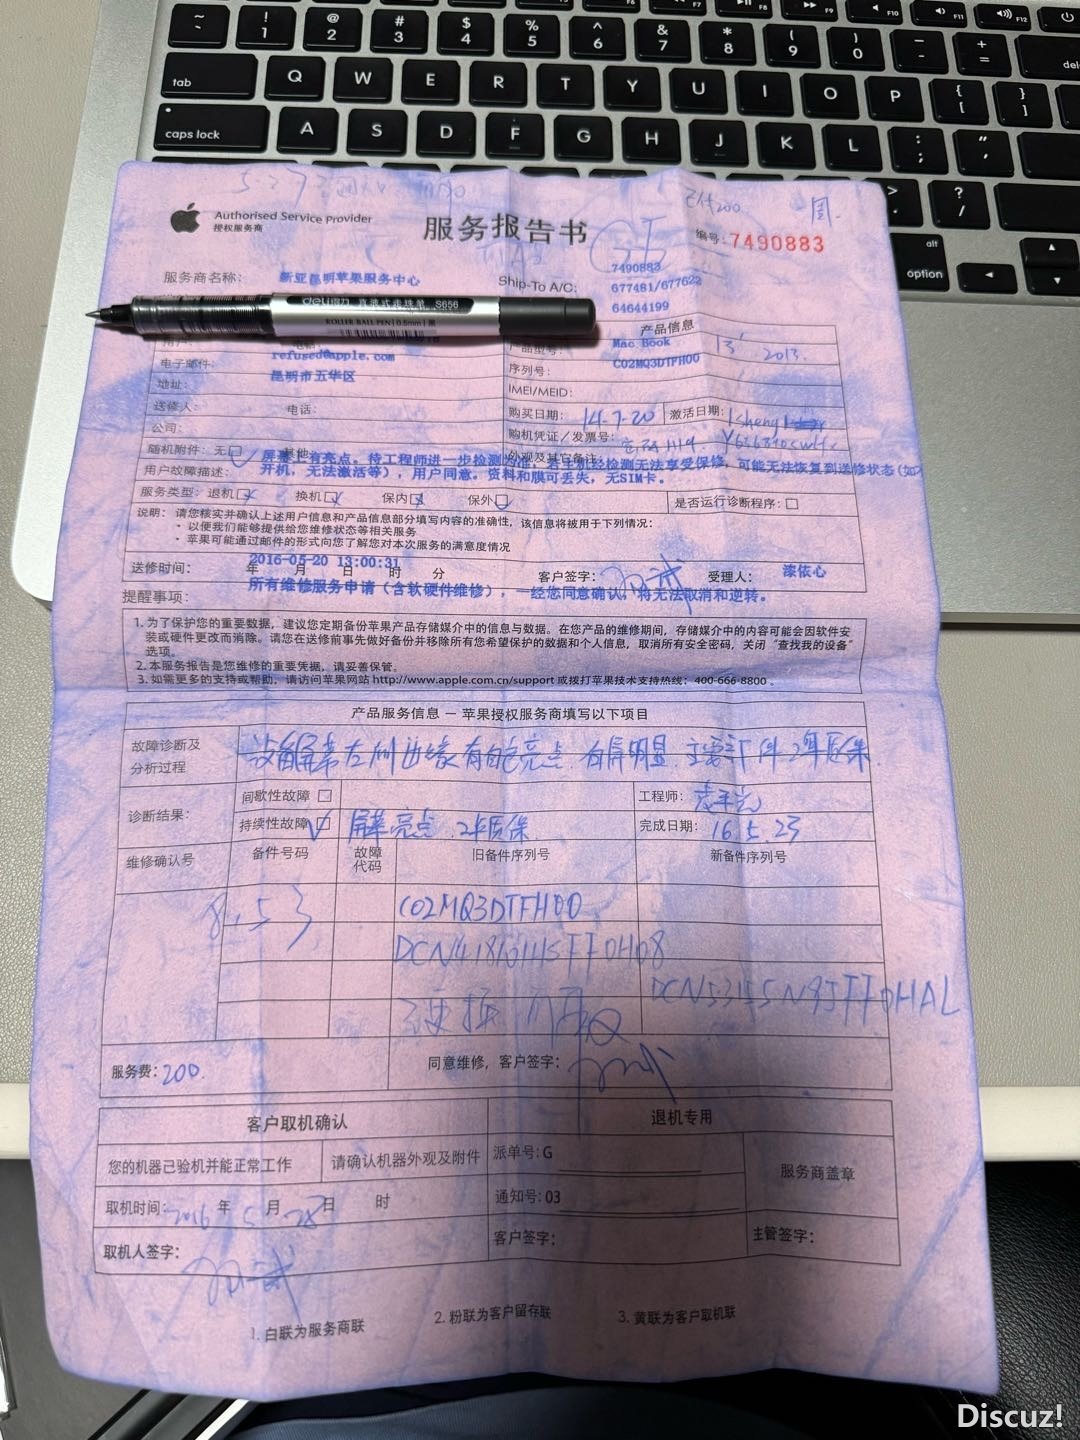 ~ ! @ # $ % ^ & * ( ) _ +
` 1 2 3 4 5 6 7 8 9 0 - =
tab Q W E R T Y U I O P { [ } ]
caps lock A S D F G H J K L : ; " '
> . ? /
alt option
已付200
Authorised Service Provider
授权服务商
服务报告书
编号:7490883
7490883
服务商名称: 新亚昆明苹果服务中心
Ship-To A/C: 677481/677622
64644199
deli得力 直液式走珠笔 S656
ROLLER BALL PEN 0.5mm 黑
产品信息
用户: 电话:
产品型号: Mac Book 13' 2013.
电子邮件: refused@apple.com
序列号: C02MQ3DTFH00
地址: 昆明市五华区
IMEI/MEID:
送修人: 电话:
购买日期: 14.7.20 激活日期:
公司:
购机凭证/发票号:
随机附件: 无 其他:
外观及其它备注:
用户故障描述: 屏幕上有亮点。待工程师进一步检测为准,若主机经检测无法享受保修,可能无法恢复到送修状态(如
开机,无法激活等),用户同意。资料和膜可丢失,无SIM卡。
服务类型: 退机 换机 保内 保外 是否运行诊断程序:
说明: 请您核实并确认上述用户信息和产品信息部分填写内容的准确性,该信息将被用于下列情况:
• 以便我们能够提供给您维修状态等相关服务
• 苹果可能通过邮件的形式向您了解您对本次服务的满意度情况
送修时间: 2016-05-20 13:00:31
年 月 日 时 分
客户签字: 受理人: 漆依心
提醒事项: 所有维修服务申请(含软硬件维修),一经您同意确认,将无法取消和逆转。
1. 为了保护您的重要数据,建议您定期备份苹果产品存储媒介中的信息与数据。在您产品的维修期间,存储媒介中的内容可能会因软件安
装或硬件更改而消除。请您在送修前事先做好备份并移除所有您希望保护的数据和个人信息,取消所有安全密码,关闭“查找我的设备”
选项。
2. 本服务报告是您维修的重要凭据,请妥善保管。
3. 如需更多的支持或帮助,请访问苹果网站 http://www.apple.com.cn/support 或拨打苹果技术支持热线: 400-666-8800 。
产品服务信息 — 苹果授权服务商填写以下项目
故障诊断及
分析过程
设备屏幕左侧边缘有白色亮点.白屏明显.主要部件2年质保.
诊断结果: 间歇性故障
工程师:
持续性故障 屏幕亮点.2年质保.
完成日期: 16.5.23
维修确认号 备件号码 故障代码 旧备件序列号 新备件序列号
8.53
C02MQ3DTFH00
DCN5315SN95FF0HAL
服务费: 200.
同意维修,客户签字:
客户取机确认 退机专用
您的机器已验机并能正常工作 请确认机器外观及附件 派单号: G
服务商盖章
取机时间: 2016 年 5 月 28 日 时
通知号: 03
取机人签字:
客户签字: 主管签字:
1. 白联为服务商联 2. 粉联为客户留存联 3. 黄联为客户取机联
Discuz!